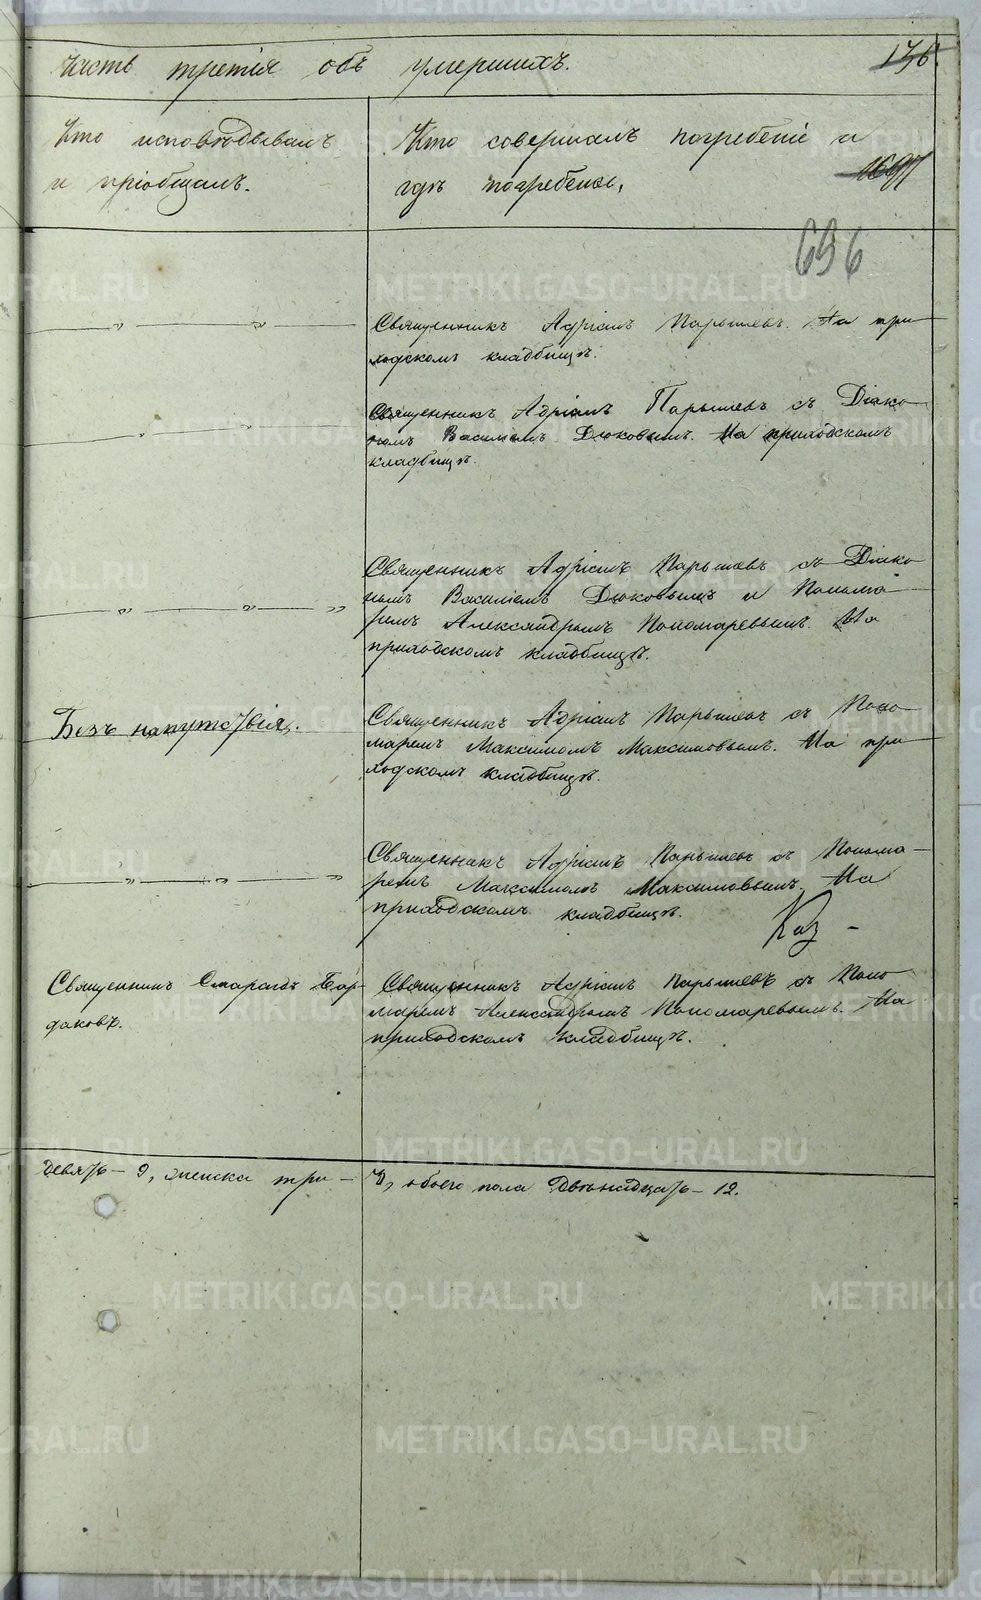 Часть третія объ умершихъ.
136
Кто исповѣдывалъ
и пріобщалъ.
Кто совершалъ погребеніе и
гдѣ погребены.
1697
696
Священникъ Адріанъ Парышевъ. На при
ходскомъ кладбищѣ.
Священникъ Адріанъ Парышевъ съ Діако
номъ Василіемъ Дюковымъ. На приходскомъ
кладбищѣ.
Священникъ Адріанъ Парышевъ съ Діако
номъ Василіемъ Дюковымъ и Понома
ремъ Александромъ Пономаревымъ. На
приходскомъ кладбищѣ.
Безъ напутствія.
Священникъ Адріанъ Парышевъ съ Поно
маремъ Максимомъ Максимовымъ. На при
ходскомъ кладбищѣ.
Священникъ Адріанъ Парышевъ съ Понома
ремъ Максимомъ Максимовымъ. На
приходскомъ кладбищѣ.
Каз
Священникъ Смарагдъ Бар
даковъ.
Священникъ Адріанъ Парышевъ съ Поно
маремъ Александромъ Пономаревымъ. На
приходскомъ кладбищѣ.
девять – 9, женска три – 3, обоего пола Двѣнадцать – 12.
METRIKI.GASO-URAL.RU